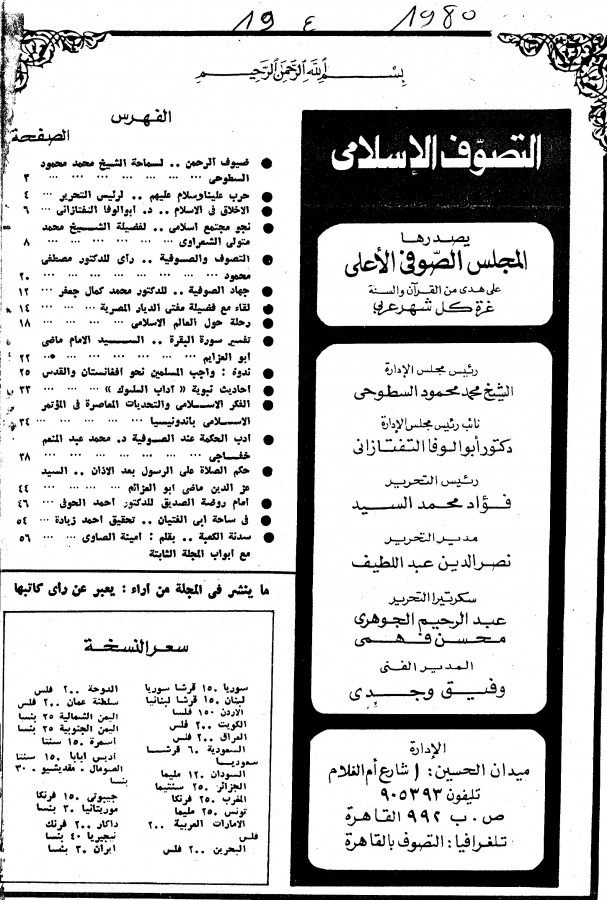 19 ٤ 1980
بِسْمِ اللهِ الرَّحْمٰنِ الرَّحِيمِ
التصوّف الإسلامى
يصدرها
المجلس الصّوفى الأعلى
على هدى من القرآن والسنة
غرة كل شهر عربي
رئيس مجلس الإدارة
الشيخ محمد محمود السطوحى
نائب رئيس مجلس الإدارة
دكتور أبو الوفا التفتازانى
رئيس التحرير
فؤاد محمد السيد
مدير التحرير
نصر الدين عبد اللطيف
سكرتيرا التحرير
عبد الرحيم الجوهرى
محسن فهمى
المدير الفنى
وفيق وجدى
الإدارة
ميدان الحسين: ١ شارع أم الغلام
تليفون ٩٠٥٣٩٣
ص . ب ٩٩٢ القاهرة
تلغرافيا : التصوف بالقاهرة
الفهرس
الصفحة
ضيوف الرحمن .. لسماحة الشيخ محمد محمود
السطوحى ... ... ... ... ... ... ٣
حرب علينا وسلام عليهم .. لرئيس التحرير ... ٤
الاخلاق فى الاسلام .. د. ابوالوفا التفتازانى ... ٦
نحو مجتمع اسلامى .. لفضيلة الشيخ محمد
متولى الشعراوى ... ... ... ... ... ٨
التصوف والصوفية .. رأى للدكتور مصطفى
محمود ... ... ... ... ... ... ٢٠
جهاد الصوفية .. للدكتور محمد كمال جعفر ... ١٢
لقاء مع فضيلة مفتى الديار المصرية ... ... ١٤
رحلة حول العالم الاسلامى ... ... ... ١٨
تفسير سورة البقرة .. السيد الامام ماضى
ابو العزايم ... ... ... ... ... ... ٢٢
ندوة : واجب المسلمين نحو افغانستان والقدس ٢٥
احاديث نبوية « آداب السلوك » ... ... ... ٣٣
الفكر الاسلامى والتحديات المعاصرة فى المؤتمر
الاسلامى باندونيسيا ... ... ... ... ٣٤
ادب الحكمة عند الصوفية د. محمد عبد المنعم
خفاجى ... ... ... ... ... ... ٣٨
حكم الصلاة على الرسول بعد الاذان .. السيد
عز الدين ماضى ابو العزائم ... ... ... ٤٤
امام روضة الصديق للدكتور أحمد الحوفى ... ٤٦
فى ساحة ابى الفتيان .. تحقيق احمد زيادة ... ٥٤
سدنة الكعبة .. بقلم : امينة الصاوى ... ... ٥٦
مع ابواب المجلة الثابتة
ما ينشر فى المجلة من آراء : يعبر عن رأى كاتبها
سعر النسخة
سوريا ١٥٠ قرشا سوريا
لبنان ١٥٠ قرشا لبنانيا
الاردن ١٥٠ فلسا
الكويت ٢٠٠ فلس
العراق ٢٠٠ فلس
السعودية ٦٠ قرشا
سعوديا
السودان ١٢٠ مليما
الجزائر ٢٥٠ سنتيما
المغرب ٢٥٠ فرنكا
تونس ٢٥٠ مليما
الامارات العربية ٢٠٠
فلس
البحرين ٢٠٠ فلس
الدوحة ٢٠٠ فلس
سلطنة عمان ٢٠٠ فلس
اليمن الشمالية ٢٥ بنسا
اليمن الجنوبية ٢٥ بنسا
أسمرة ١٥٠ سنتا
أديس أبابا ١٥٠ سنتا
الصومال - مقديشيو ٣٠
بنسا
جيبوتى ١٥٠ فرنكا
موريتانيا ٣٠ بنسا
داكار ٢٠٠ فرنك
نيجيريا ٤٠ بنسا
ايران ٣٠ بنسا